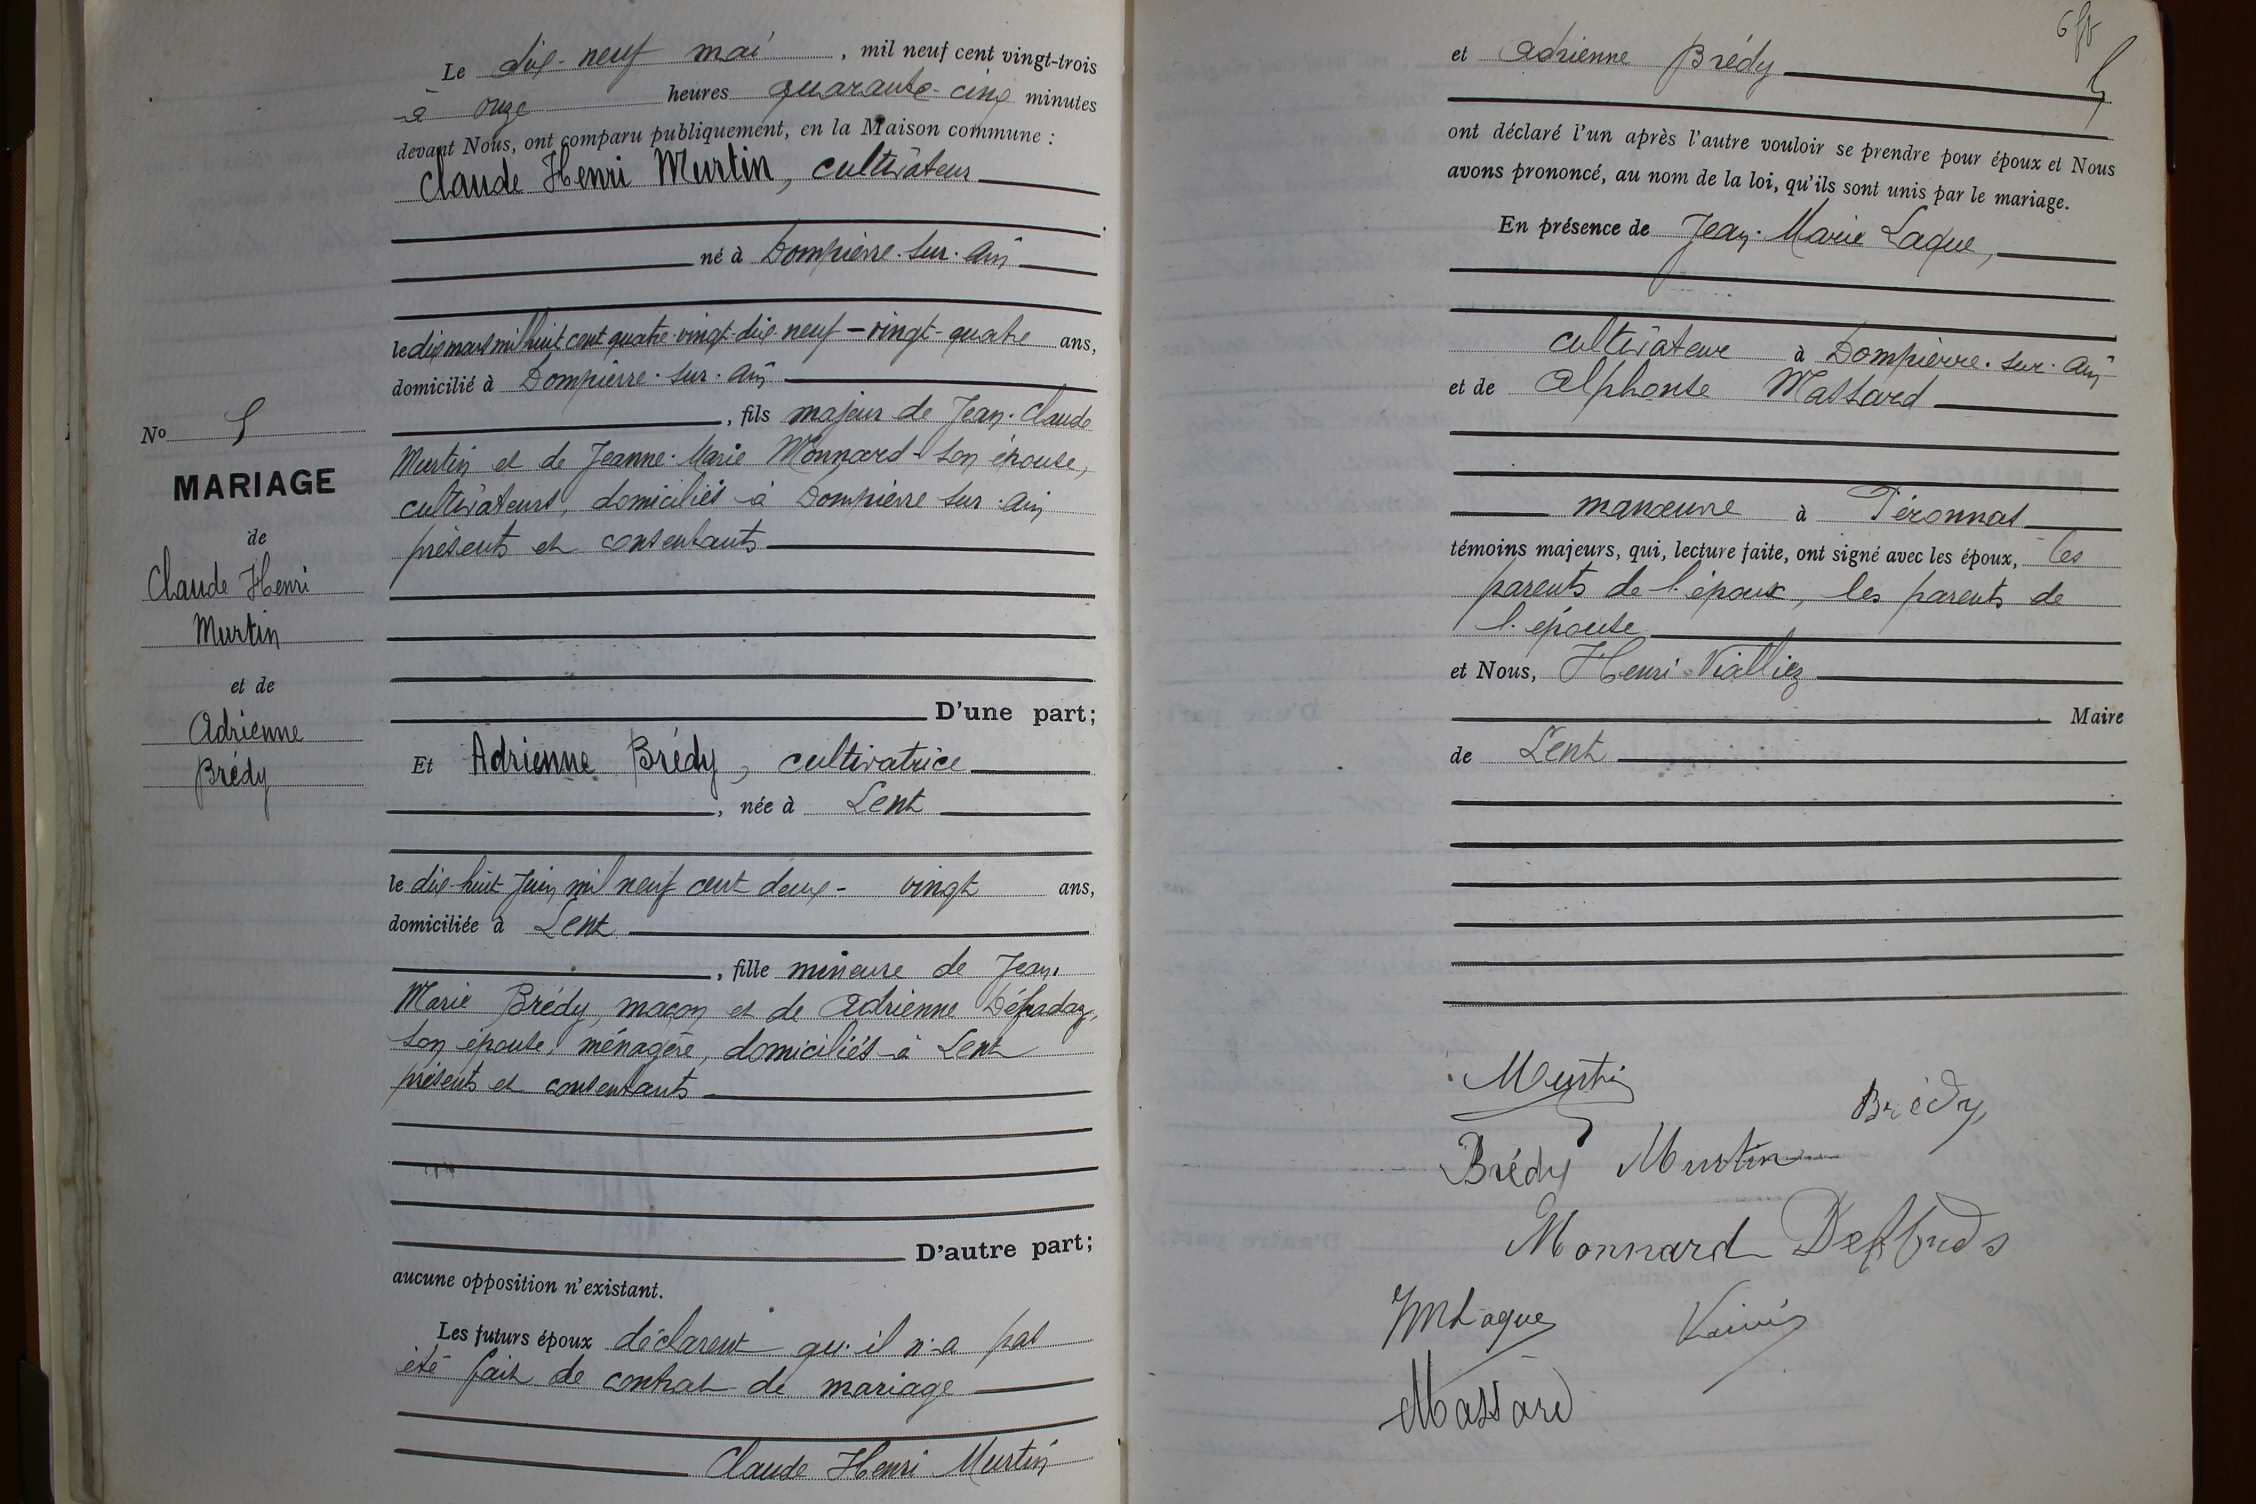 Le dix-neuf mai, mil neuf cent vingt-trois
à onze heures quarante-cinq minutes
devant Nous, ont comparu publiquement, en la Maison commune :
Claude Henri Murtin, cultivateur
né à Dompierre-sur-Ain
le dix mars mil huit cent quatre-vingt-dix-neuf - vingt-quatre ans,
domicilié à Dompierre-sur-Ain
, fils majeur de Jean-Claude
Murtin et de Jeanne-Marie Monnard son épouse,
cultivateurs, domiciliés à Dompierre sur-Ain
présents et consentants
No
MARIAGE
de
Claude Henri
Murtin
et de
Adrienne
Brédy
D'une part;
Et Adrienne Brédy, cultivatrice
, née à Lent
le dix-huit Juin mil neuf cent deux - vingt ans,
domiciliée à Lent
, fille mineure de Jean-
Marie Brédy, maçon et de Adrienne
son épouse, ménagère, domiciliés à Lent
présents et consentants
D'autre part;
aucune opposition n'existant.
Les futurs époux déclarent qu'il n'a pas
été fait de contrat de mariage
Claude Henri Murtin
et Adrienne Brédy
ont déclaré l'un après l'autre vouloir se prendre pour époux et Nous
avons prononcé, au nom de la loi, qu'ils sont unis par le mariage.
En présence de Jean-Marie Laque,
cultivateur à Dompierre-sur-Ain
et de Alphonse Massard
manœuvre à Péronnas
témoins majeurs, qui, lecture faite, ont signé avec les époux, les
parents de l'époux, les parents de
l'épouse
et Nous, Henri Vialliez
Maire
de Lent
Murtin
Brédy
Brédy Murtin
Monnard
JMLaque
Massard